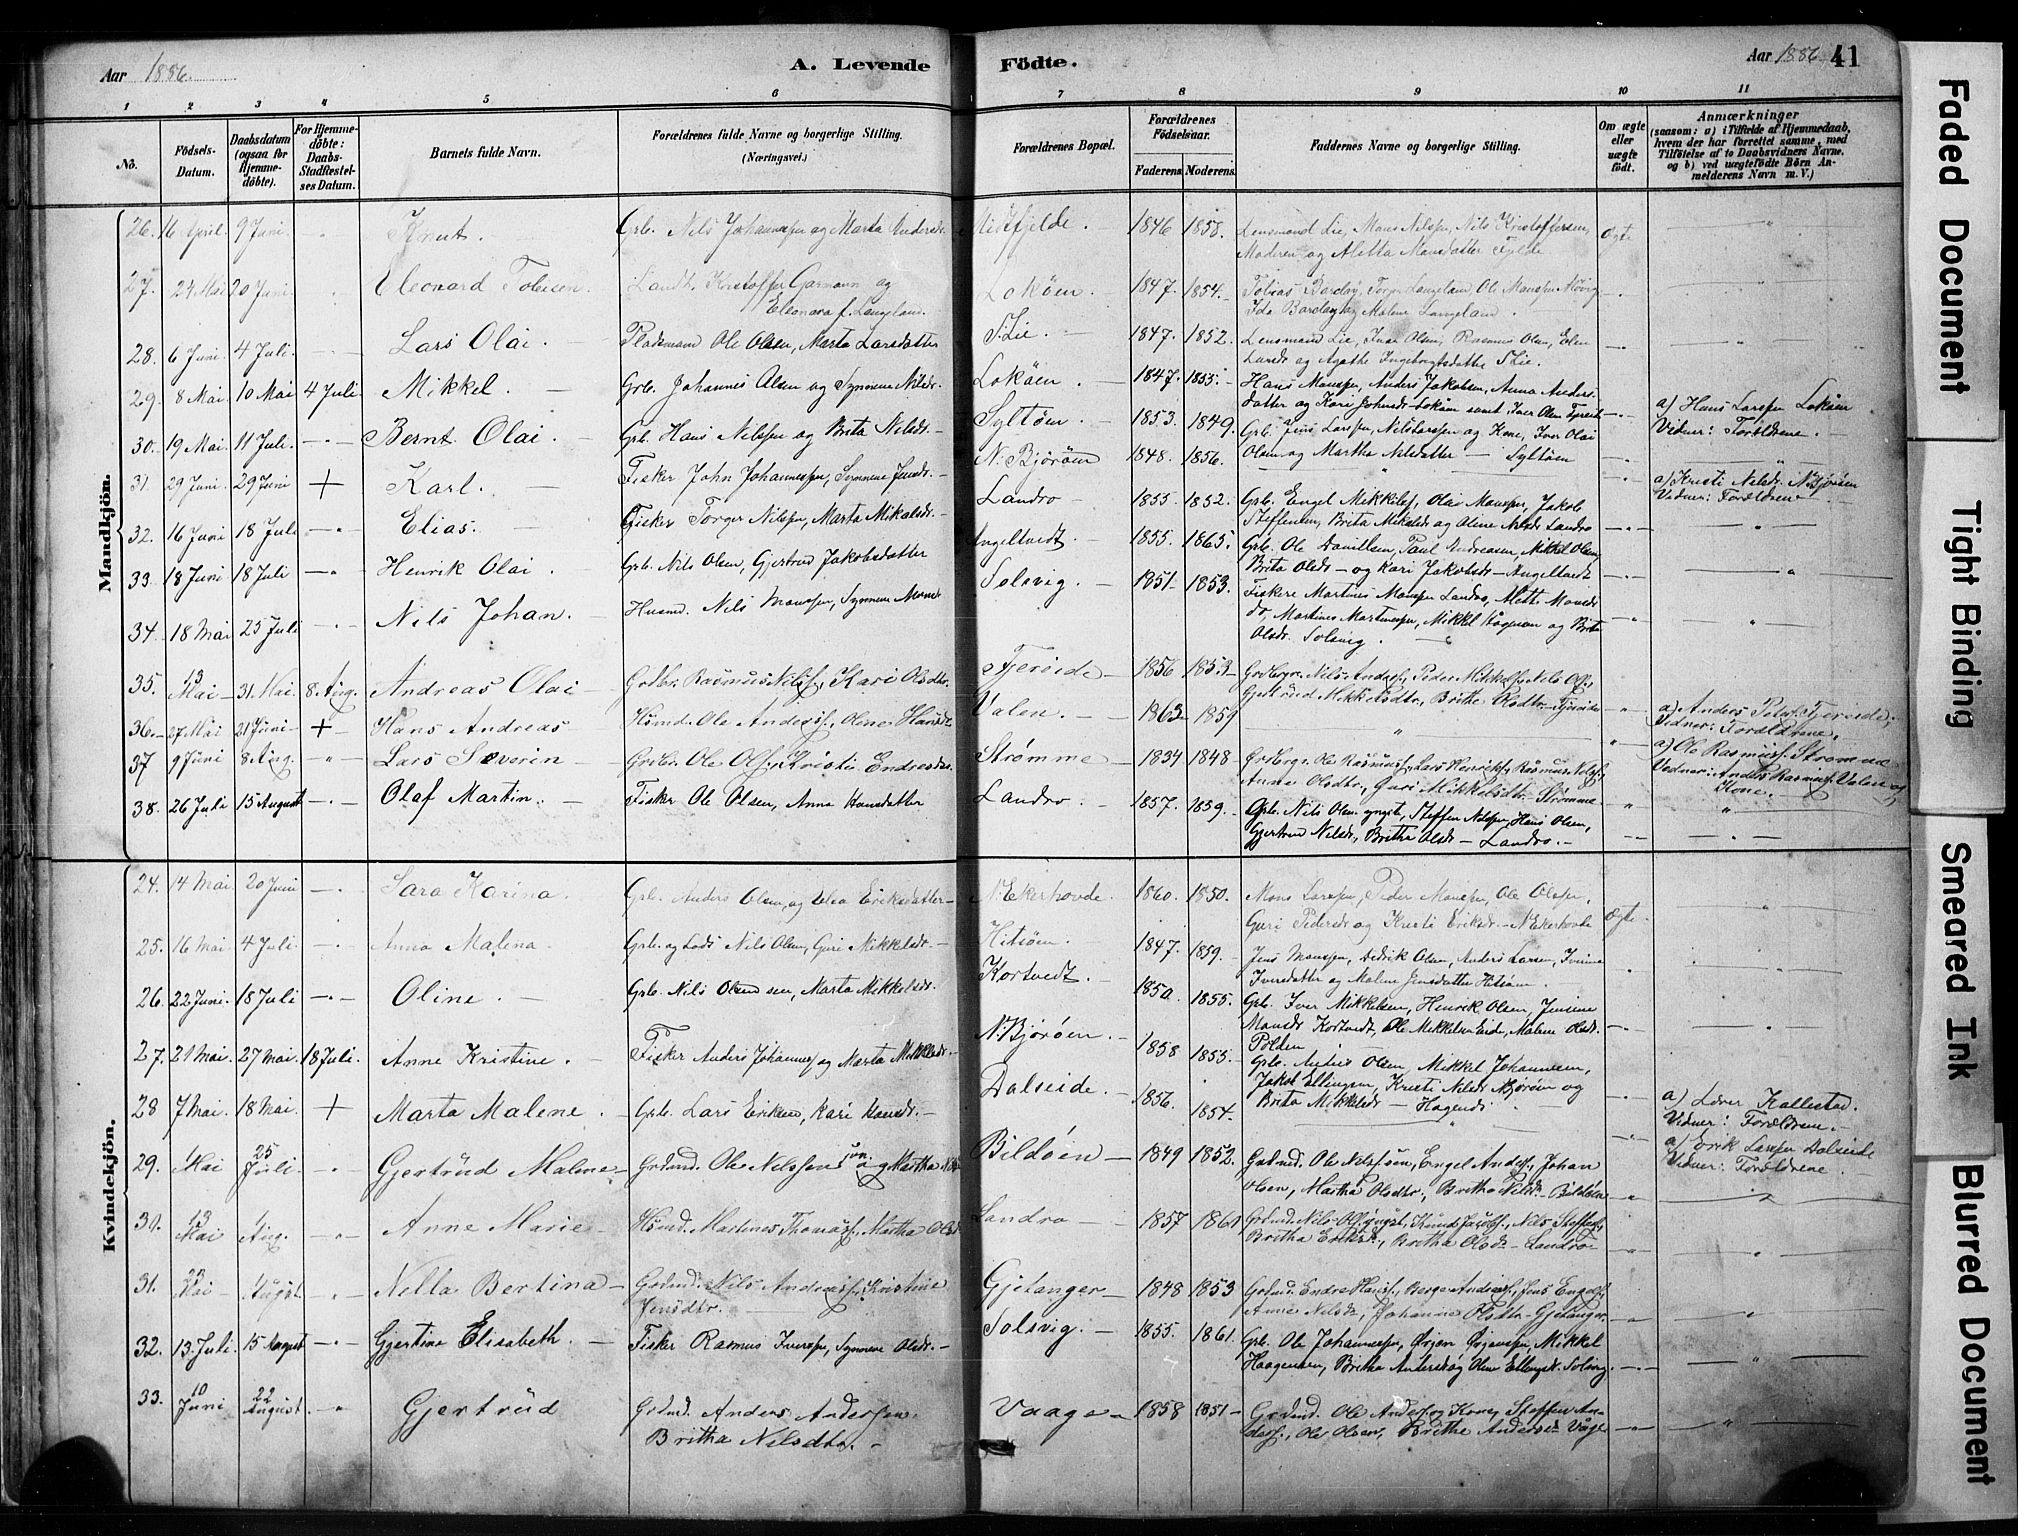 Aar 1886.
A. Levende Födte.
Aar 1886. 41
1 2 3 4 5 6 7 8 9 10 11
No.
Födsels-Datum.
Daabsdatum (ogsaa for Hjemme-döbte).
For Hjemme-döbte: Daabs-Stadfæstel-ses Datum.
Barnets fulde Navn.
Forældrenes fulde Navne og borgerlige Stilling. (Næringsvei.)
Forældrenes Bopæl.
Forældrenes Födselsaar.
Faderens Moderens.
Faddernes Navne og borgerlige Stilling.
Om ægte eller uægte födt.
Anmærkninger (saasom: a) i Tilfælde af Hjemmedaab, hvem der har forrettet samme, med Tilföielse af to Daabsvidners Navne, og b) ved uægtefödte Börn An-melderens Navn m. V.)
Mandkjön.
26. 16 April. 9 Juni Knut. Grb. Nils Johannessen og Marta Andersdr. 1846 1858. Lensmand Lie, Mons Nilssen, Nils Kristoffersen, Ægte
Moderen og Aletta Monsdatter Fjelde
27. 24 Mai 20 Juni Eleonard Tobisen. Landh. Kristoffer Garmann og Lokøen. 1847. 1854. Tobias Barclay, Torger Langeland, Ole Monssen
Eleonora f. Langeland. Ida Barclay og Malene Langeland.
28. 6 Juni 4 Juli Lars Olai. Pladsmand Ole Olsen, Marta Larsdatter S. Lie. 1847. 1852. Lensmand Lie, Ivar Olsen, Rasmus Olsen, Elen
Larsdr og Agathe Ingeborgtsdatter S Lie.
29. 8 Mai 10 Mai 4 Juli Mikkel. Grb. Johannes Olsen og Synneve Nilsdr. Lokøen. 1847. 1855. Hans Monssen, Anders Jakobsen, Anna Anders-
datter og Kari Johnsdr Lokøen samt Iver Olsen a) Hans Larssen Lokøen
30. 19 Mai. 11 Juli. Bernt Olai. Grb. Hans Nilssen og Brita Nilsdr. Syltøen. 1853. 1849. Grb. Jens Larssen, Nils Larssen og Kone, Iver Olai Vidner: Forældrene.
Olsen og Martha Nilsdatter Syltøen
31. 29 Juni 29 Juni + Karl. Fisker John Johannessen, Synneve Jensdr. N. Bjorøen 1848. 1856. a) Kristi Nilsdr. N Bjorøen
Vidner: Forældrene
32. 16 Juni 18 Juli Elias. Fisker Torger Nilssen, Marta Mikalsdr. Landro 1855. 1852. Grb. Engel Mikkels., Olai Monssen, Jakob
Steffensen, Brita Mikalsdr og Oline Nilsdr Landro
33. 18 Juni 18 Juli Henrik Olai. Grb. Nils Olsen, Gjertrud Jakobsdatter Angeltvedt. 1855. 1865. Grb. Ole Danielsen, Paul Andreasen, Mikkel Olsen,
Brita Olsdr og Kari Jakobsdr Angeltvedt
34. 18 Mai 25 Juli Nils Johan. Husmd. Nils Monssen, Synneve Monsdr Solsvig. 1851 1853. Fiskere Martines Monssen Landro, Alette Monsdr
do, Martines Martinussen, Mikkel Haagensen og Brita
Olsdr. Solsvig.
35. 13 Mai 31 Mai. 8 Aug. Andreas Olai Grdbr. Rasmus Nilss., Kari Olsdtr. Fjereide 1856 1853 Grdbrgr. Nils Anders., Peder Mikkels. Nils Ols.,
Gjertrud Mikkelsdtr., Brithe Olsdtr. Fjereide
36. 27 Mai 21 Juni + Hans Andreas Hsmd. Ole Anderss., Oline Hansdr Valen. 1863 1859 a) Anders Peters. Fjereide,
Vidner: Forældrene.
37 9 Juni 8 Aug. Lars Severin Grdbr. Ole Ols., Kristi Endresdr Strømme 1834 1848 Grdbrgr. Ole Rasmuss., Lars Henriks., Rasmus Nilss., a) Ole Rasmuss. Strømme
Anne Olsdtr., Guri Mikkelsdtr. Strømme Vidner: Anders Rasmuss. Valen og
Kone.
38. 26 Juli 15 August Olaf Martin. Fisker Ole Olsen, Anne Hansdatter Landro. 1857. 1859. Grb. Nils Olsen yngste, Steffen Nilssen, Hans Olsen,
Gjertrud Nilsdr., Brithe Olsdr Landro.
Kvindekjön.
24. 14 Mai. 20 Juni Sara Karina. Grb. Anders Olsen, og Olea Eriksdatter N. Ekerhovde. 1860. 1850. Mons Larssen, Peder Monssen, Ole Olssen,
Guri Pedersdr og Kristi Eriksdr. N Ekerhovde Ægte
25. 16 Mai 4 Juli Anna Malena. Grb. og Lods Nils Olsen, Guri Mikkelsdr. Hitsøen. 1847. 1859. Jens Monssen, Didrik Olsen, Anders Larsen, Iverine
Iversdatter og Malene Jensdatter Hitsøen.
26. 22 Juni. 18 Juli Oline. Grb. Nils Olsen, Marta Mikkelsdr. Kortvedt. 1850. 1855. Grb. Iver Mikkelsen, Henrik Olsen, Jensine
Monsdr Kortvedt, Ole Mikkelsen Eide, Malene Olsdr.
Polden
27. 21 Mai. 27 Mai. 18 Juli. Anne Kristine. Fisker Anders Johannes. og Marta Mikkelsdr. N. Bjorøen. 1858 1855. Grb. Anders Olsen, Mikkel Johannesen,
Jakob Ellingsen, Kristi Nilsdr Bjorøen og
Brita Mikkelsdr
28 7 Mai. 18 Mai. + Marta Malene. Grb. Lars Eriksen, Kari Hansdr. Dalseide. 1856. 1854. a) Lærer Kallestad.
Vidner: Forældrene.
a) Erik Larssen Dalseide
29. 1 Mai 25 Juli Gjertrud Malene Grdmd. Ole Nilssen jun. og Martha Bildøen 1849 1852. Grdmd. Ole Nilssen, Engel Anders., Johan Vidner: Forældrene.
Olsen, Martha Olsdtr., Britha Nilsdr. Bildøen
30. 13 Mai 1 Aug. Anne Marie Hsmd. Martines Thomass., Martha Olsd Landro 1857 1861 Grdmd. Nils Ols. yngst., Knud Jacobs., Nils Steffens.,
Britha Eriksd., Britha Olsdr Landro
31. 23 Mai 1 August Nella Bertina Grdmd. Nils Andreass., Kristine Gjetanger 1848 1853 Grdmd. Endre Hans., Berge Anders., Jens Engels.,
Jensdtr. Anne Nilsdr, Johanne Olsdtr. Gjetanger
32. 13 Juli. 15 August Gjertine Elisabeth. Fisker Rasmus Iverssen, Synneve Olsdr. Solsvig. 1855. 1861. Grb. Ole Johannessen, Ørjan Ørjanssen, Mikkel
Haagensen, Britha Andersdr og Oline Ellingsdr. Solsvig
33. 10 Juni 22 August Gjertrud Grdmd. Anders Andersen, Vaage 1858 1851 Grdmd. Ole Anders. og Kone, Steffen An-
Britha Nilsdtr. ders., Ole Olsen, Brithe Andersd Våge
Faded Document
Tight Binding
Smeared Ink
Blurred Document